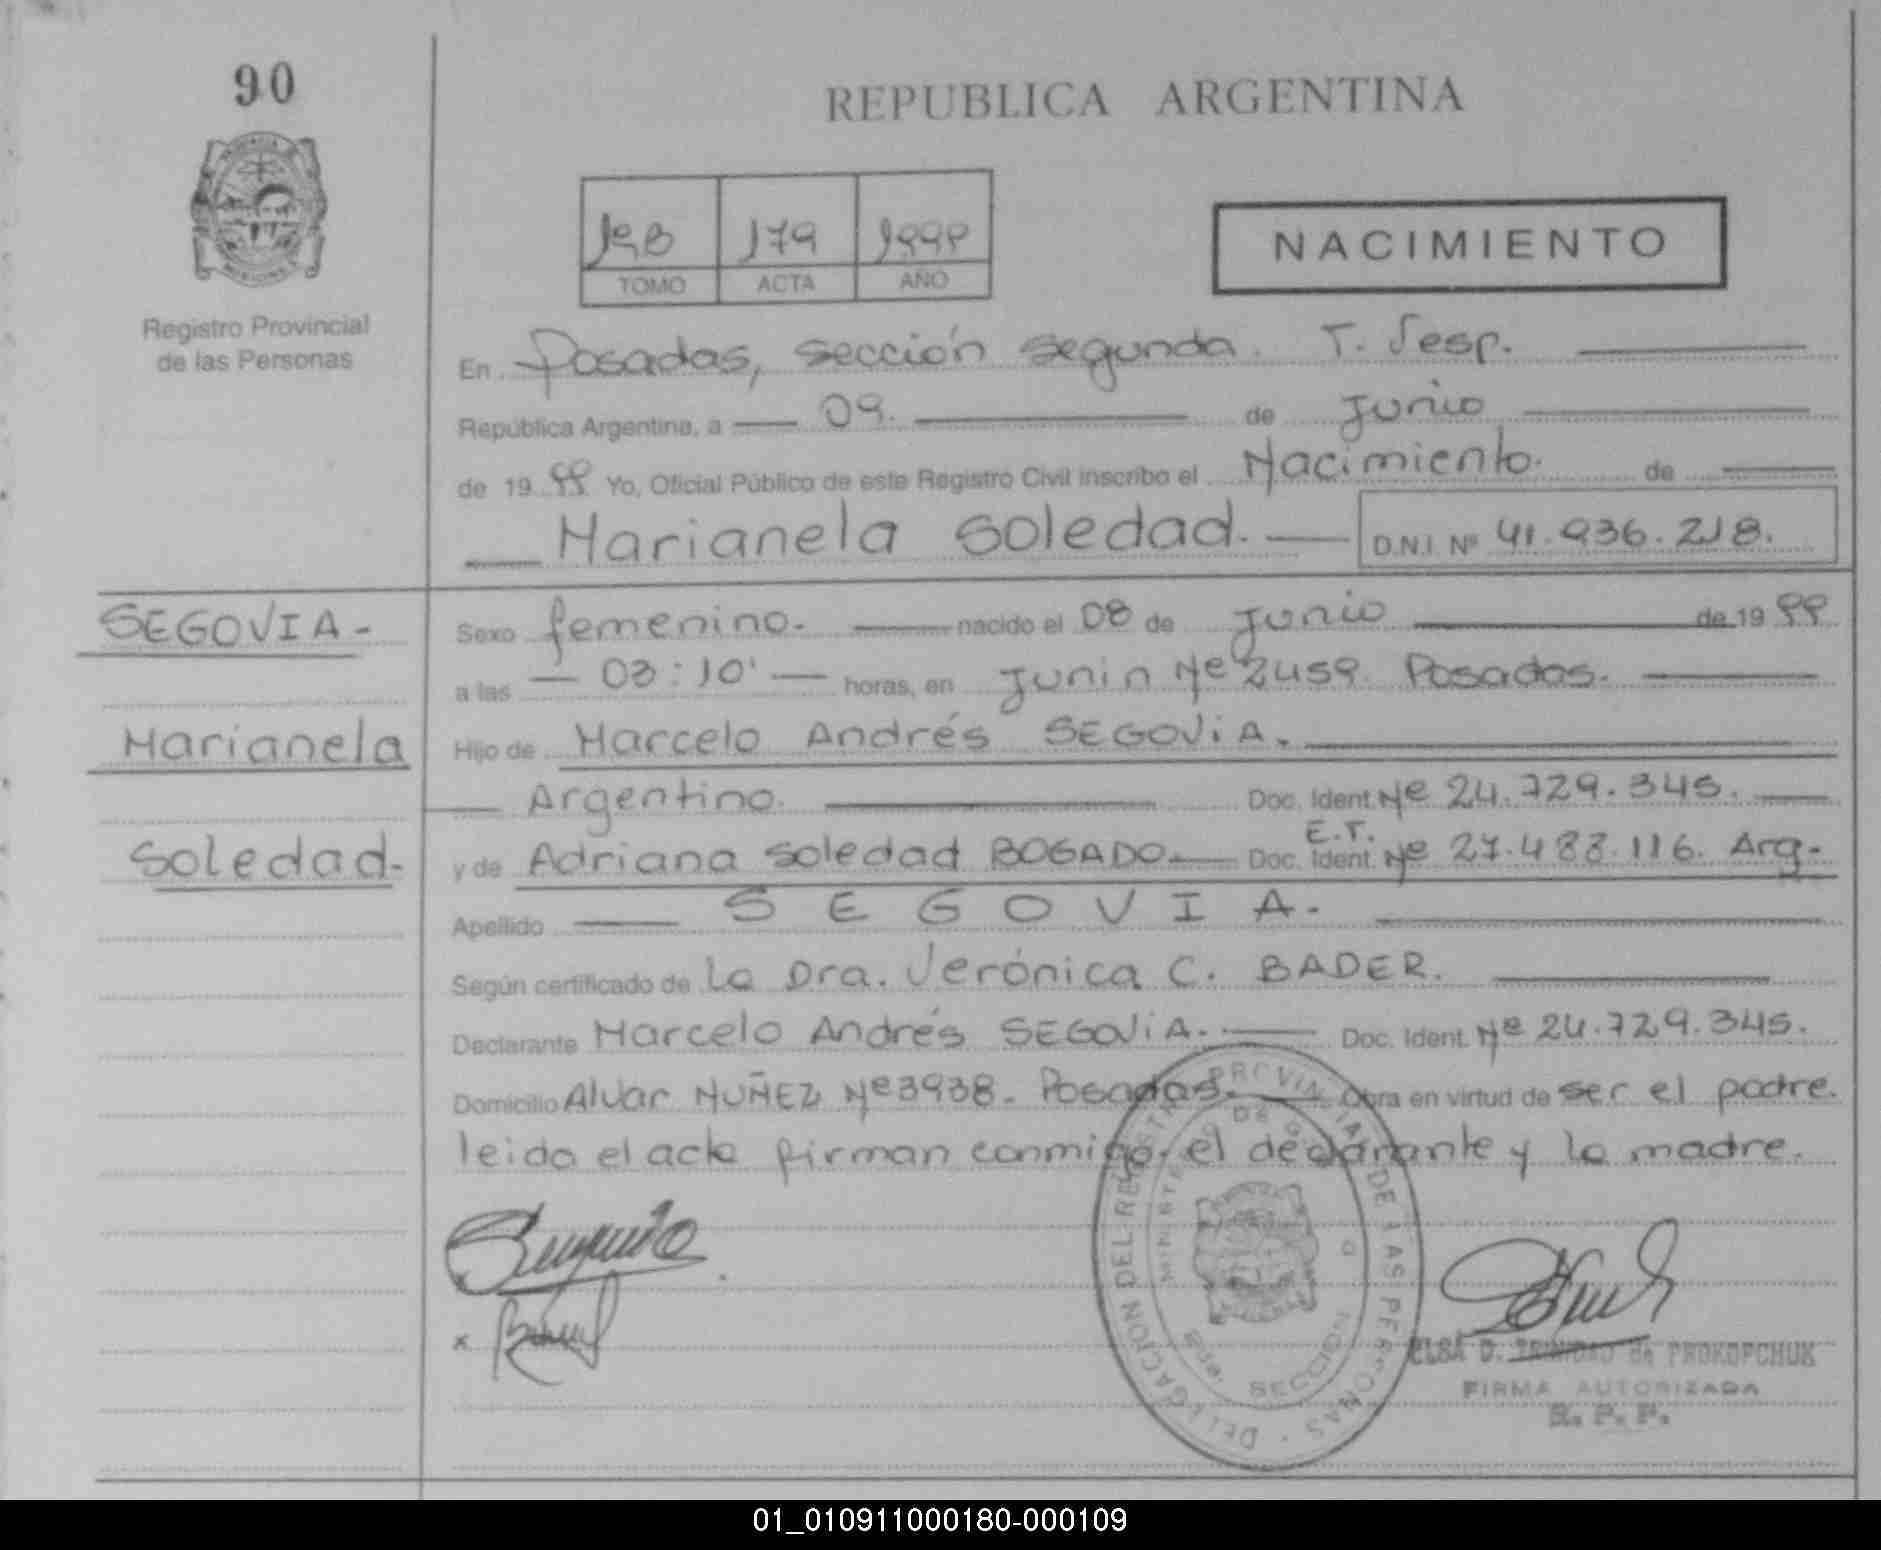 90
REPUBLICA ARGENTINA
179 1999
TOMO ACTA AÑO
NACIMIENTO
Registro Provincial
de las Personas
En Posadas, sección segunda. T. Vesp.
República Argentina, a 09. de Junio
de 1999 Yo, Oficial Público de este Registro Civil inscribo el Nacimiento. de
Marianela Soledad. D.N.I. Nº 41.936.218.
SEGOVIA-
Sexo femenino. nacido el 08 de Junio de 1999
a las 03:10' horas, en Junin Nº 2459. Posadas.
Marianela
Hijo de Marcelo Andrés SEGOVIA.
Argentino. Doc. Ident. Nº 24.729.345.
E.T.
Soledad.
y de Adriana Soledad BOGADO Doc. Ident. Nº 27.483.116. Arg.
Apellido SEGOVIA.
Según certificado de La Dra. Verónica C. BADER.
Declarante Marcelo Andrés SEGOVIA. Doc. Ident. Nº 24.729.345.
Domicilio Alvar NUÑEZ Nº 3938. Posadas. Obra en virtud de ser el padre.
leida el acta firman conmigo, el declarante y la madre.
DELEGACION DEL REGISTRO PROVINCIAL DE LAS PERSONAS
MINISTERIO DE G
SECCION
x
ELSA D. TRINIDAD de PROKOPCHUK
FIRMA AUTORIZADA
R. P. P.
01_010911000180-000109